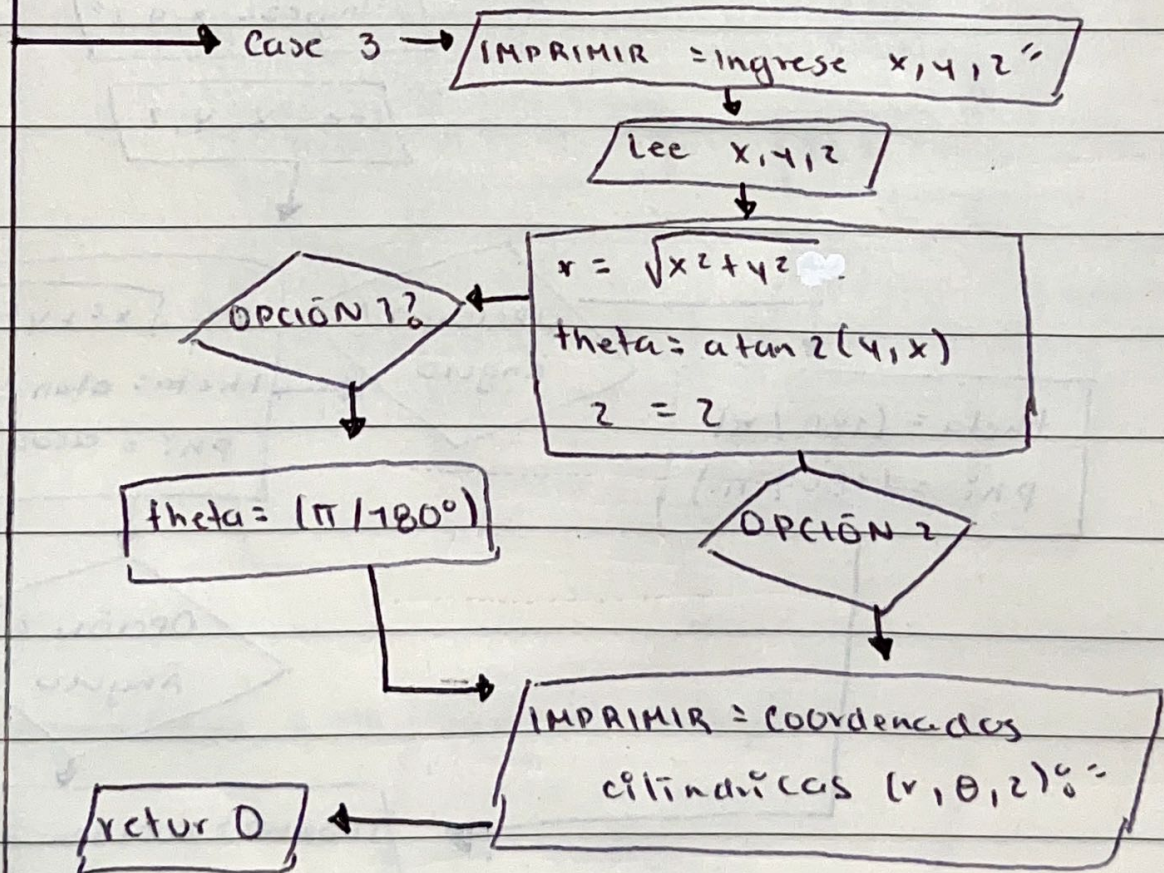 Case 3
IMPRIMIR = ingrese x, y, z"
Lee x, y, z
r = √x²+y²
theta = atan2(y, x)
z = z
OPCIÓN 1?
theta = (π/180°)
OPCIÓN 2
IMPRIMIR = coordenadas
cilindricas (r, θ, z):"
retur 0